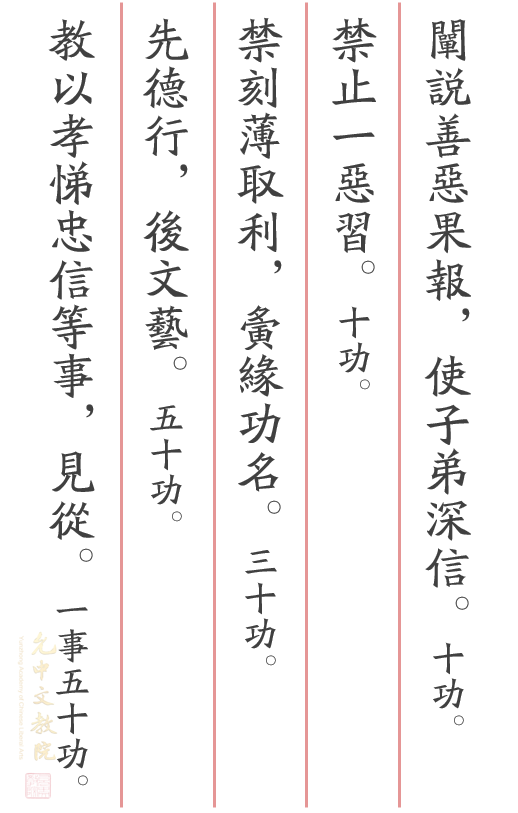 闡説善惡果報，使子弟深信。十功。
禁止一惡習。十功。
禁刻薄取利，夤緣功名。三十功。
先德行，後文藝。五十功。
教以孝悌忠信等事，見從。一事五十功。
允中文教院